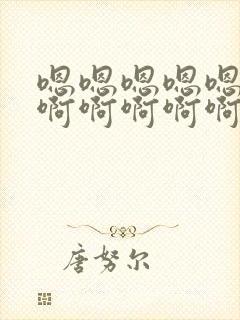 嗯嗯嗯嗯嗯
啊啊啊啊啊
唐努尔